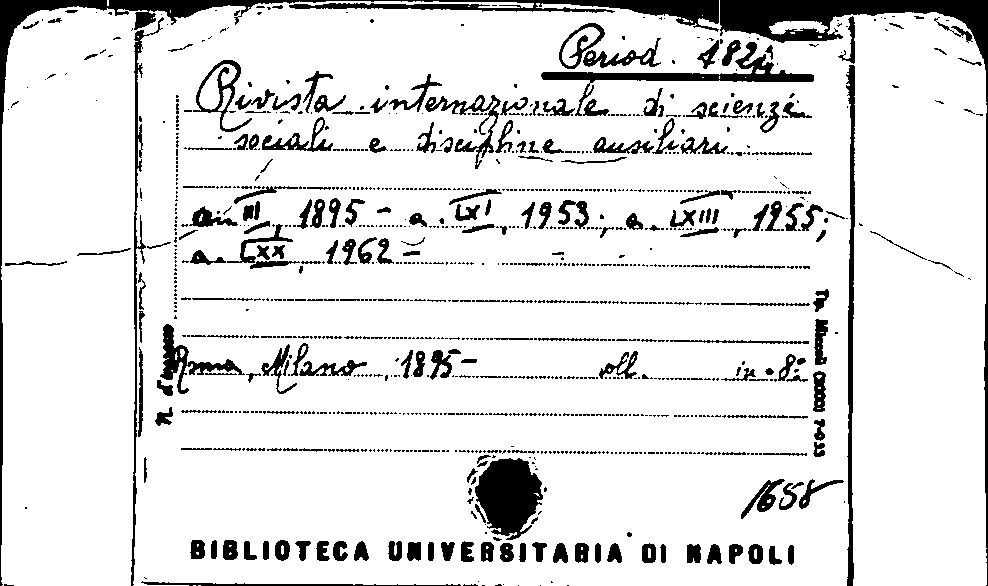 Period. 182
Rivista internazionale di scienze
sociali e discipline ausiliari.
an. III, 1895 - a. LXI, 1953; a. LXIII, 1955;
a. LXX, 1962 -
Roma, Milano, 1895 - voll. in-8°
N. d'ingresso
1658
BIBLIOTECA UNIVERSITARIA DI NAPOLI